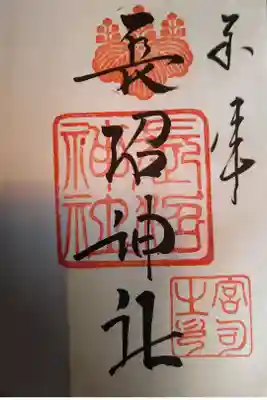 奉拝
長沼神社
長沼
神社
宮司
之印